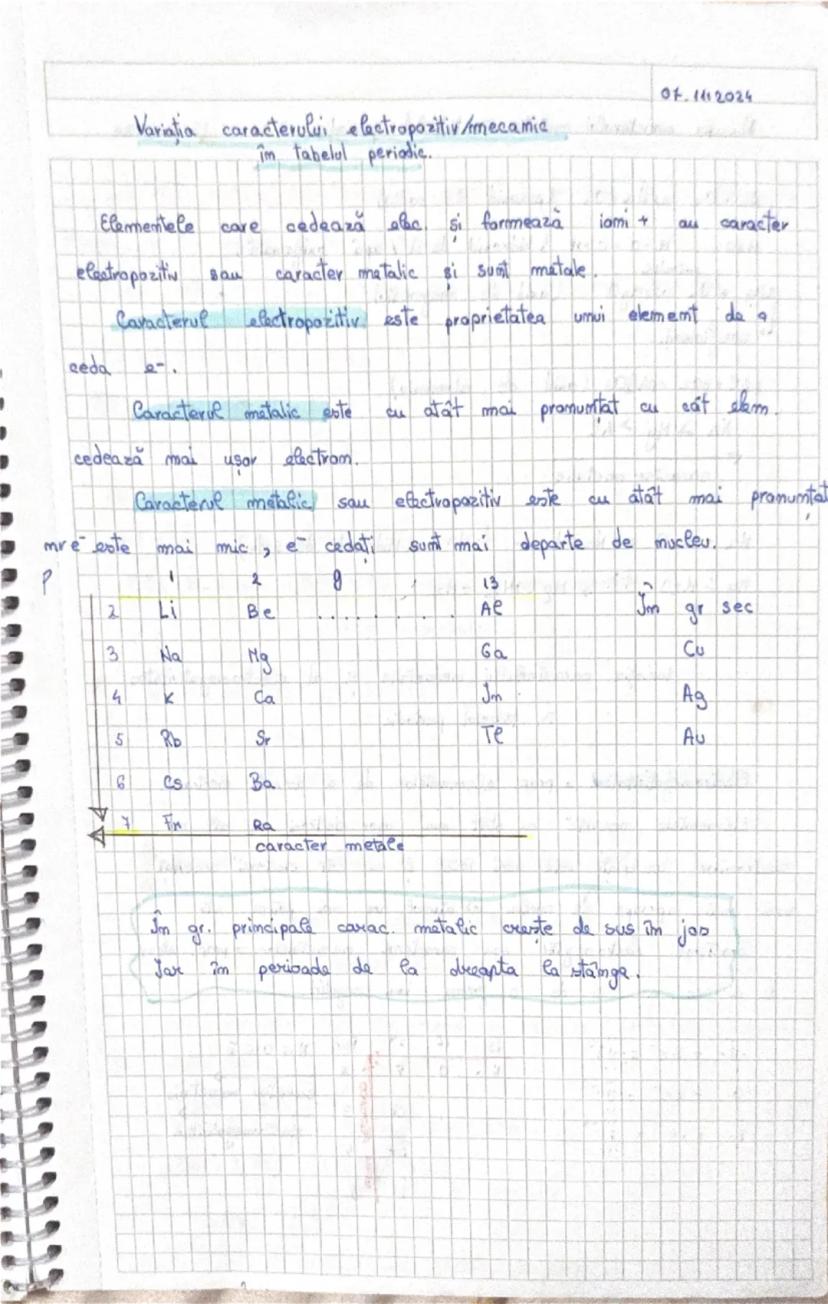 07.11.2024
Variația caracterului electropozitiv/mecanic
în tabelul periodic.
Elementele care cedează elec. și formează ioni + au caracter
electropozitiv sau caracter metalic și sunt metale.
Caracterul electropozitiv este proprietatea unui element de a
ceda e-.
Caracterul metalic este cu atât mai pronunțat cu cât elem.
cedează mai ușor electron.
Caracterul metalic sau electropozitiv este cu atât mai pronunțat
nr e- este mai mic, e- cedați sunt mai departe de nucleu.
P 1 2 13
2 Li Be ......... Al În gr sec
3 Na Mg Ga Cu
4 K Ca In Ag
5 Rb Sr Tl Au
6 Cs Ba
7 Fr Ra
caracter metale
În gr. principale carac. metalic crește de sus în jos
Iar în perioade de la dreapta la stânga.